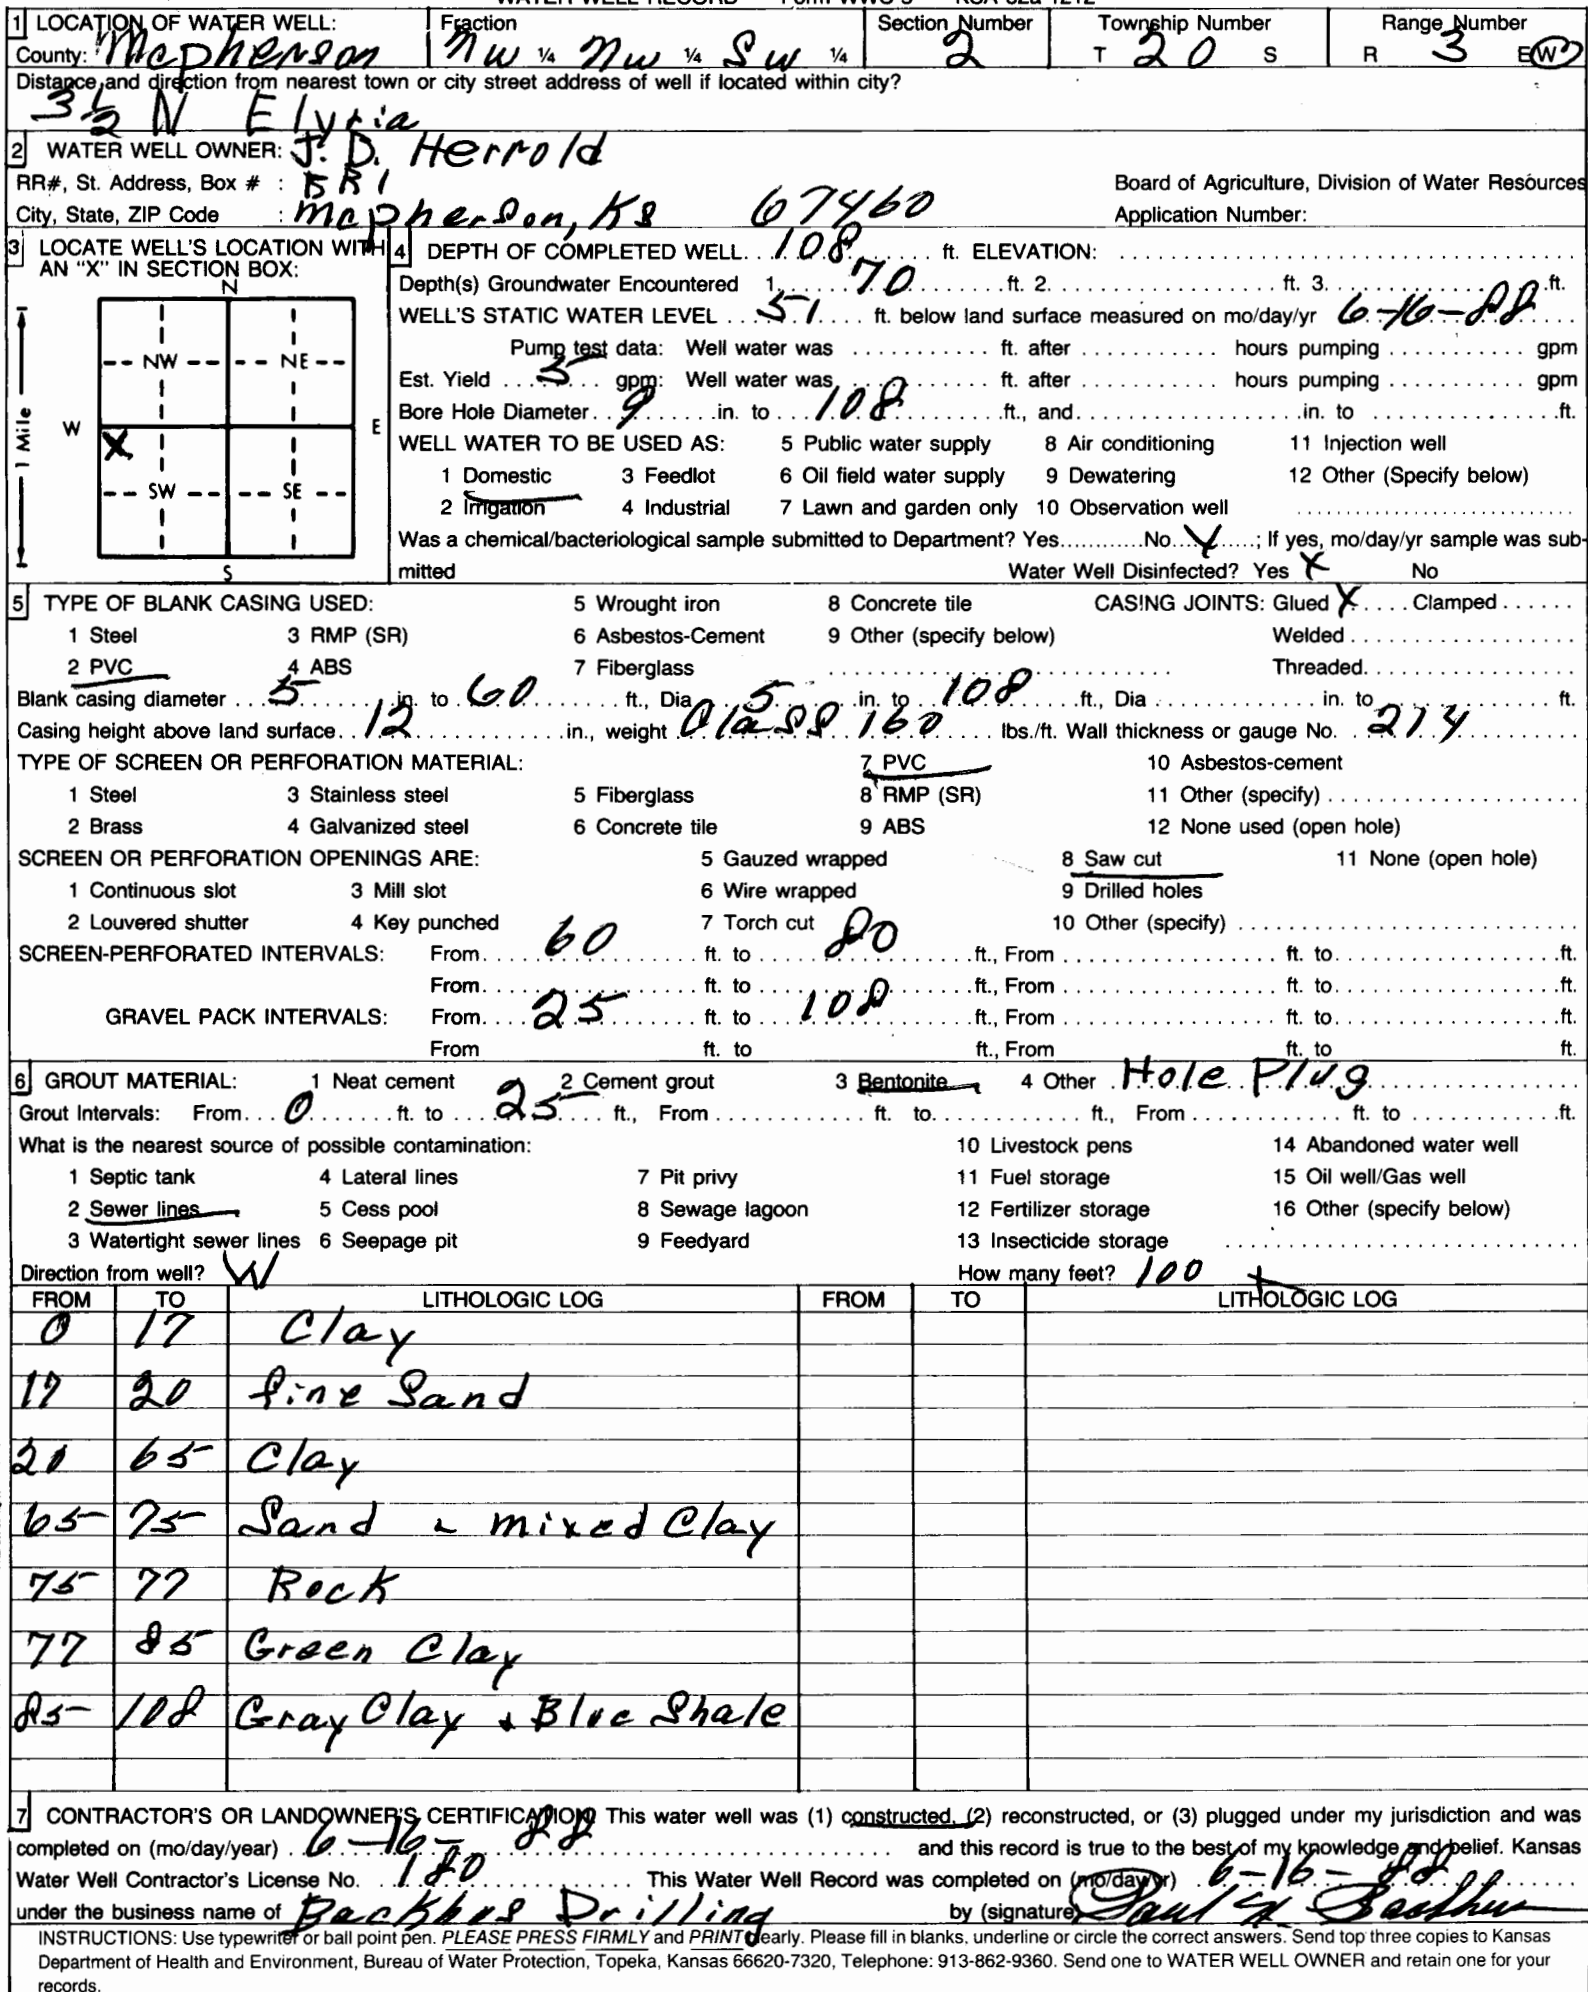 WATER WELL RECORD Form WWC-5 KSA 82a-1212
1 LOCATION OF WATER WELL: Fraction Section Number Township Number Range Number
County: McPherson NW ¼ NW ¼ SW ¼ 2 T 20 S R 3 E W
Distance and direction from nearest town or city street address of well if located within city?
3 1/2 N Elyria
2 WATER WELL OWNER: J. D. Herrold
RR#, St. Address, Box # : RR1 Board of Agriculture, Division of Water Resources
City, State, ZIP Code : McPherson, Ks 67460 Application Number:
3 LOCATE WELL'S LOCATION WITH AN "X" IN SECTION BOX:
N
NW NE
W X E
SW SE
S
1 Mile
4 DEPTH OF COMPLETED WELL 108 ft. ELEVATION:
Depth(s) Groundwater Encountered 1. 70 ft. 2. ft. 3. ft.
WELL'S STATIC WATER LEVEL 51 ft. below land surface measured on mo/day/yr 6-16-88
Pump test data: Well water was ft. after hours pumping gpm
Est. Yield 5 gpm: Well water was ft. after hours pumping gpm
Bore Hole Diameter 9 in. to 108 ft., and in. to ft.
WELL WATER TO BE USED AS: 5 Public water supply 8 Air conditioning 11 Injection well
1 Domestic 3 Feedlot 6 Oil field water supply 9 Dewatering 12 Other (Specify below)
2 Irrigation 4 Industrial 7 Lawn and garden only 10 Observation well
Was a chemical/bacteriological sample submitted to Department? Yes No X ; If yes, mo/day/yr sample was sub-
mitted Water Well Disinfected? Yes X No
5 TYPE OF BLANK CASING USED: 5 Wrought iron 8 Concrete tile CASING JOINTS: Glued X Clamped
1 Steel 3 RMP (SR) 6 Asbestos-Cement 9 Other (specify below) Welded
2 PVC 4 ABS 7 Fiberglass Threaded
Blank casing diameter 5 in. to 60 ft., Dia 5 in. to 108 ft., Dia in. to ft.
Casing height above land surface 12 in., weight Class 160 lbs./ft. Wall thickness or gauge No. 214
TYPE OF SCREEN OR PERFORATION MATERIAL: 7 PVC 10 Asbestos-cement
1 Steel 3 Stainless steel 5 Fiberglass 8 RMP (SR) 11 Other (specify)
2 Brass 4 Galvanized steel 6 Concrete tile 9 ABS 12 None used (open hole)
SCREEN OR PERFORATION OPENINGS ARE: 5 Gauzed wrapped 8 Saw cut 11 None (open hole)
1 Continuous slot 3 Mill slot 6 Wire wrapped 9 Drilled holes
2 Louvered shutter 4 Key punched 7 Torch cut 10 Other (specify)
SCREEN-PERFORATED INTERVALS: From 60 ft. to 80 ft., From ft. to ft.
From ft. to ft., From ft. to ft.
GRAVEL PACK INTERVALS: From 25 ft. to 108 ft., From ft. to ft.
From ft. to ft., From ft. to ft.
6 GROUT MATERIAL: 1 Neat cement 2 Cement grout 3 Bentonite 4 Other Hole Plug
Grout Intervals: From 0 ft. to 25 ft., From ft. to ft., From ft. to ft.
What is the nearest source of possible contamination: 10 Livestock pens 14 Abandoned water well
1 Septic tank 4 Lateral lines 7 Pit privy 11 Fuel storage 15 Oil well/Gas well
2 Sewer lines 5 Cess pool 8 Sewage lagoon 12 Fertilizer storage 16 Other (specify below)
3 Watertight sewer lines 6 Seepage pit 9 Feedyard 13 Insecticide storage
Direction from well? W How many feet? 100 +
FROM TO LITHOLOGIC LOG FROM TO LITHOLOGIC LOG
0 17 Clay
17 20 fine Sand
20 65 Clay
65 75 Sand & mixed Clay
75 77 Rock
77 85 Green Clay
85 108 Gray Clay & Blue Shale
7 CONTRACTOR'S OR LANDOWNER'S CERTIFICATION: This water well was (1) constructed, (2) reconstructed, or (3) plugged under my jurisdiction and was
completed on (mo/day/year) 6-16-88 and this record is true to the best of my knowledge and belief. Kansas
Water Well Contractor's License No. 180 This Water Well Record was completed on (mo/day/yr) 6-16-88
under the business name of Backhus Drilling by (signature) Paul
INSTRUCTIONS: Use typewriter or ball point pen. PLEASE PRESS FIRMLY and PRINT clearly. Please fill in blanks, underline or circle the correct answers. Send top three copies to Kansas
Department of Health and Environment, Bureau of Water Protection, Topeka, Kansas 66620-7320, Telephone: 913-862-9360. Send one to WATER WELL OWNER and retain one for your
records.